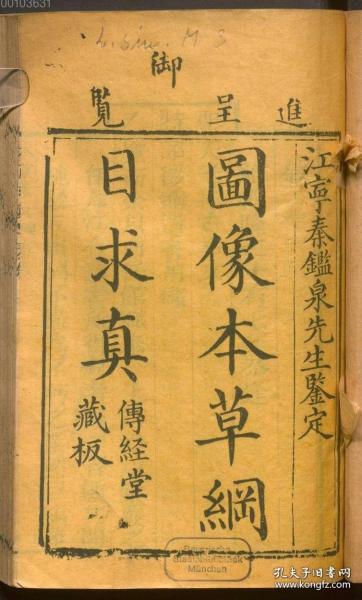 00103631
L. sin. M 3
進呈
御覧
江寧秦鑑泉先生鑒定
圖像本草綱
目求真
傳経堂
藏板
Bayerische
Staatsbibliothek
München
孔夫子旧书网
www.kongfz.com